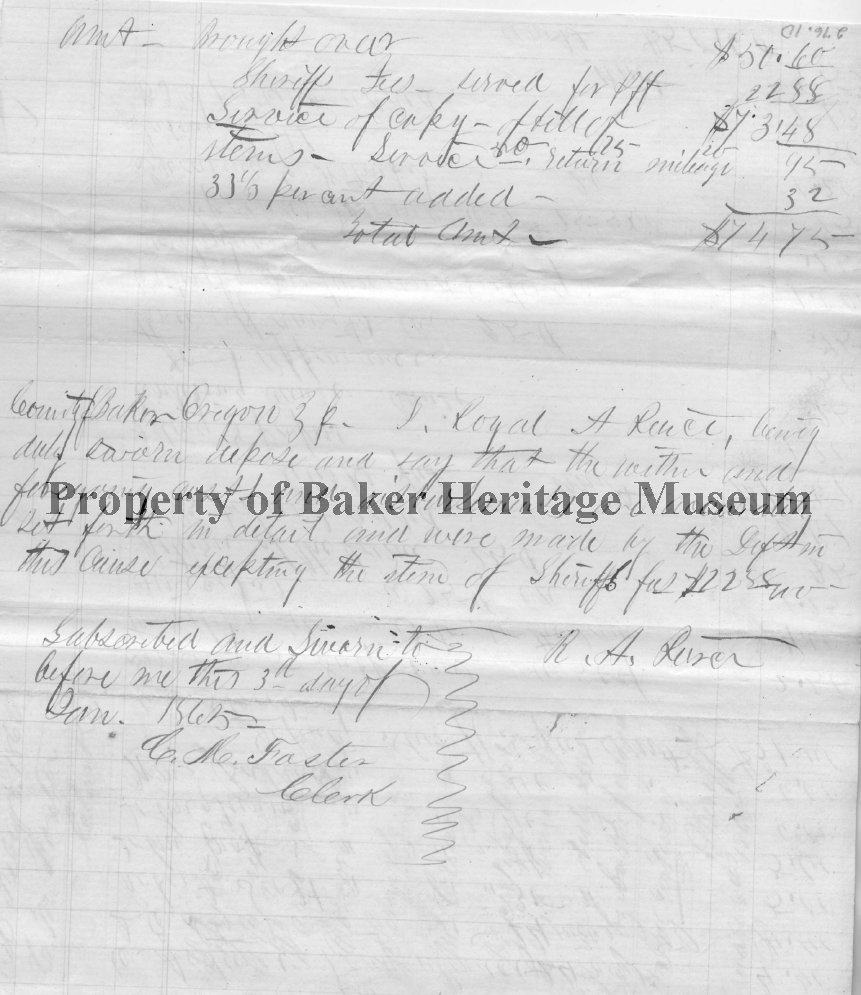 Amt – Brought over $51.60
Sheriffs Fees – served for Plff 22 88
Service of copy – of bill of $73.48
items – Service 30. return 25 mileage 20 95
33⅓ per cent added – 32
Total Amt – $74 75
County of Baker Oregon I, Royal A Peirce, being
duly sworn depose and say that the within and
foregoing
Property of Baker Heritage Museum
set forth in detail and were made by the Deft in
this Cause excepting the item of Sheriffs fees $22 88
Subscribed and Sworn to
before me this 3rd day of
Jan. 1865
R. A. Peirce
C. M. Foster
Clerk